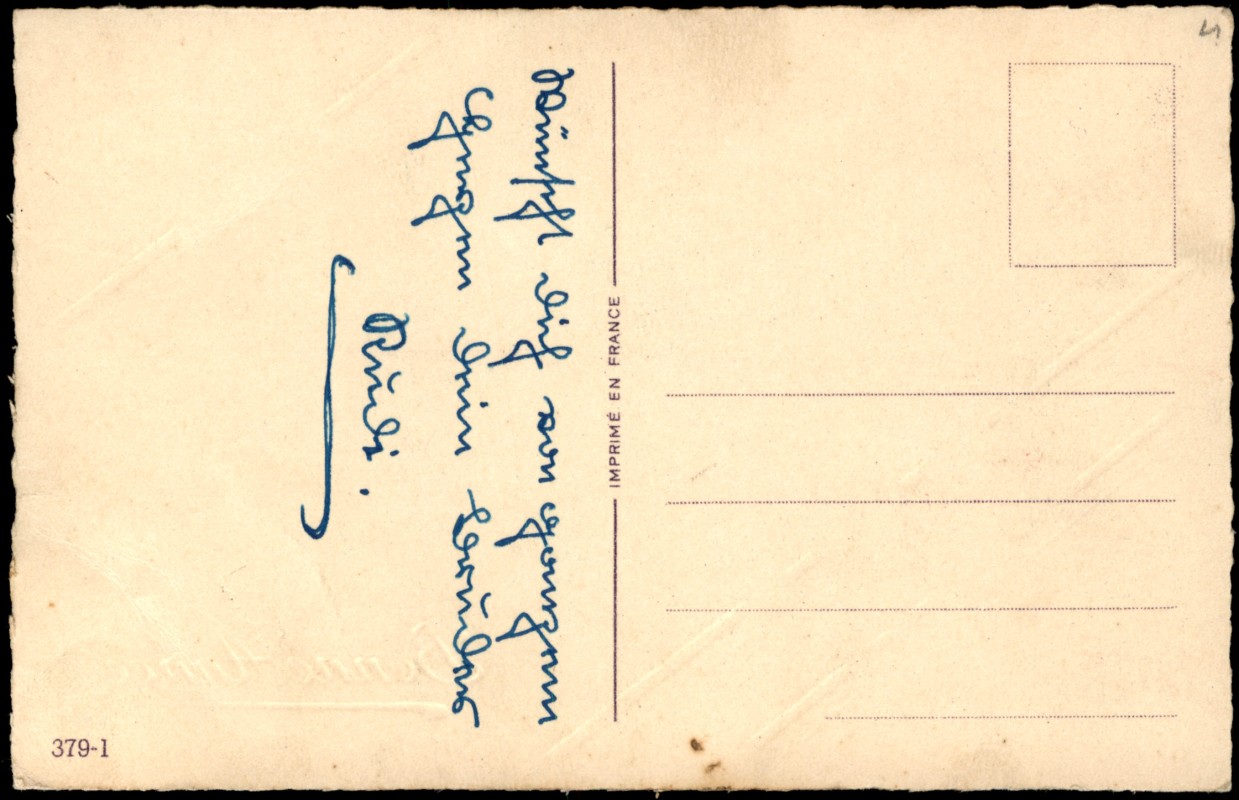 Wünscht dich von ganzem
Herzen dein Bruder
Rudi.
IMPRIMÉ EN FRANCE
Bonne Année
379-1